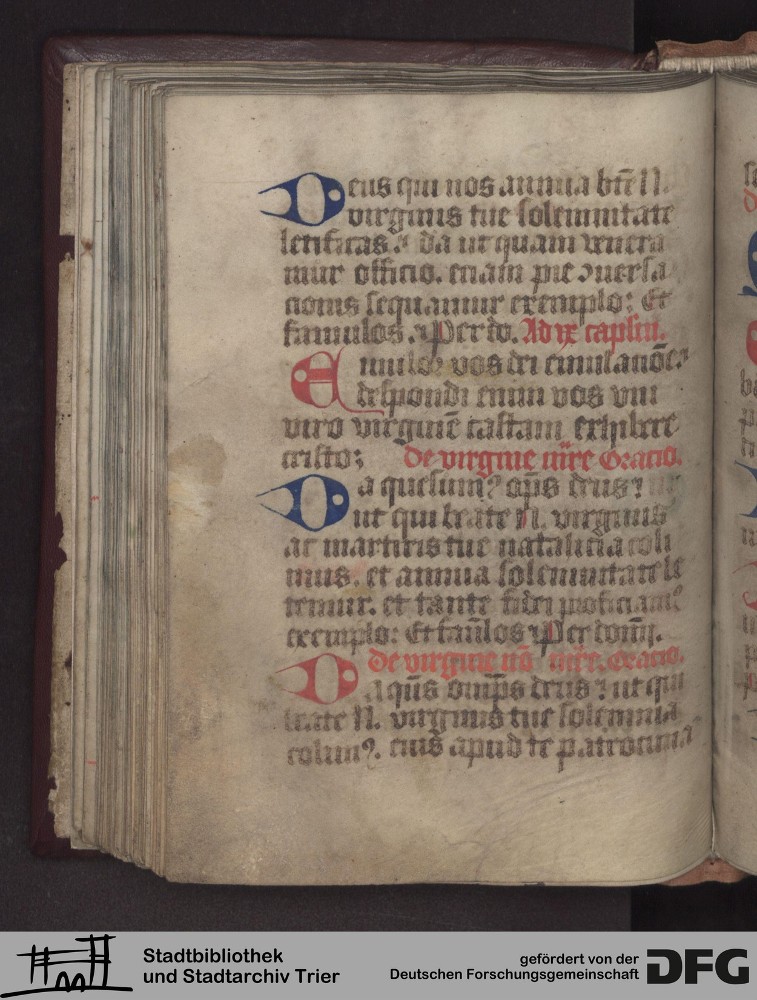 Deus qui nos annua btē N.
virginis tue solennitate
letificas? da ut quam venera
mur officio. etiam pie ɔuersa
tionis sequamur exemplo: Et
famulos. Per do. Ad ix capłm.
Emulor vos dei emulatiōe?
despondi enim vos vni
viro virginē castam exhibere
cristo; de virgine mr̄e Oracio.
Da quesum? op̄s deus?
ut qui beate N. virginis
ac martiris tue natalicia coli
mus. et annua solennitate le
temur. et tante fidei proficiam?
exemplo: Et fam̄los Per dom̄.
de virgine nō mr̄e. Oracio.
Da qūs omp̄s deus? ut qui
beate N. virginis tue solennia
colim?. eius apud te patrocinia
Stadtbibliothek
und Stadtarchiv Trier
gefördert von der
Deutschen Forschungsgemeinschaft
DFG